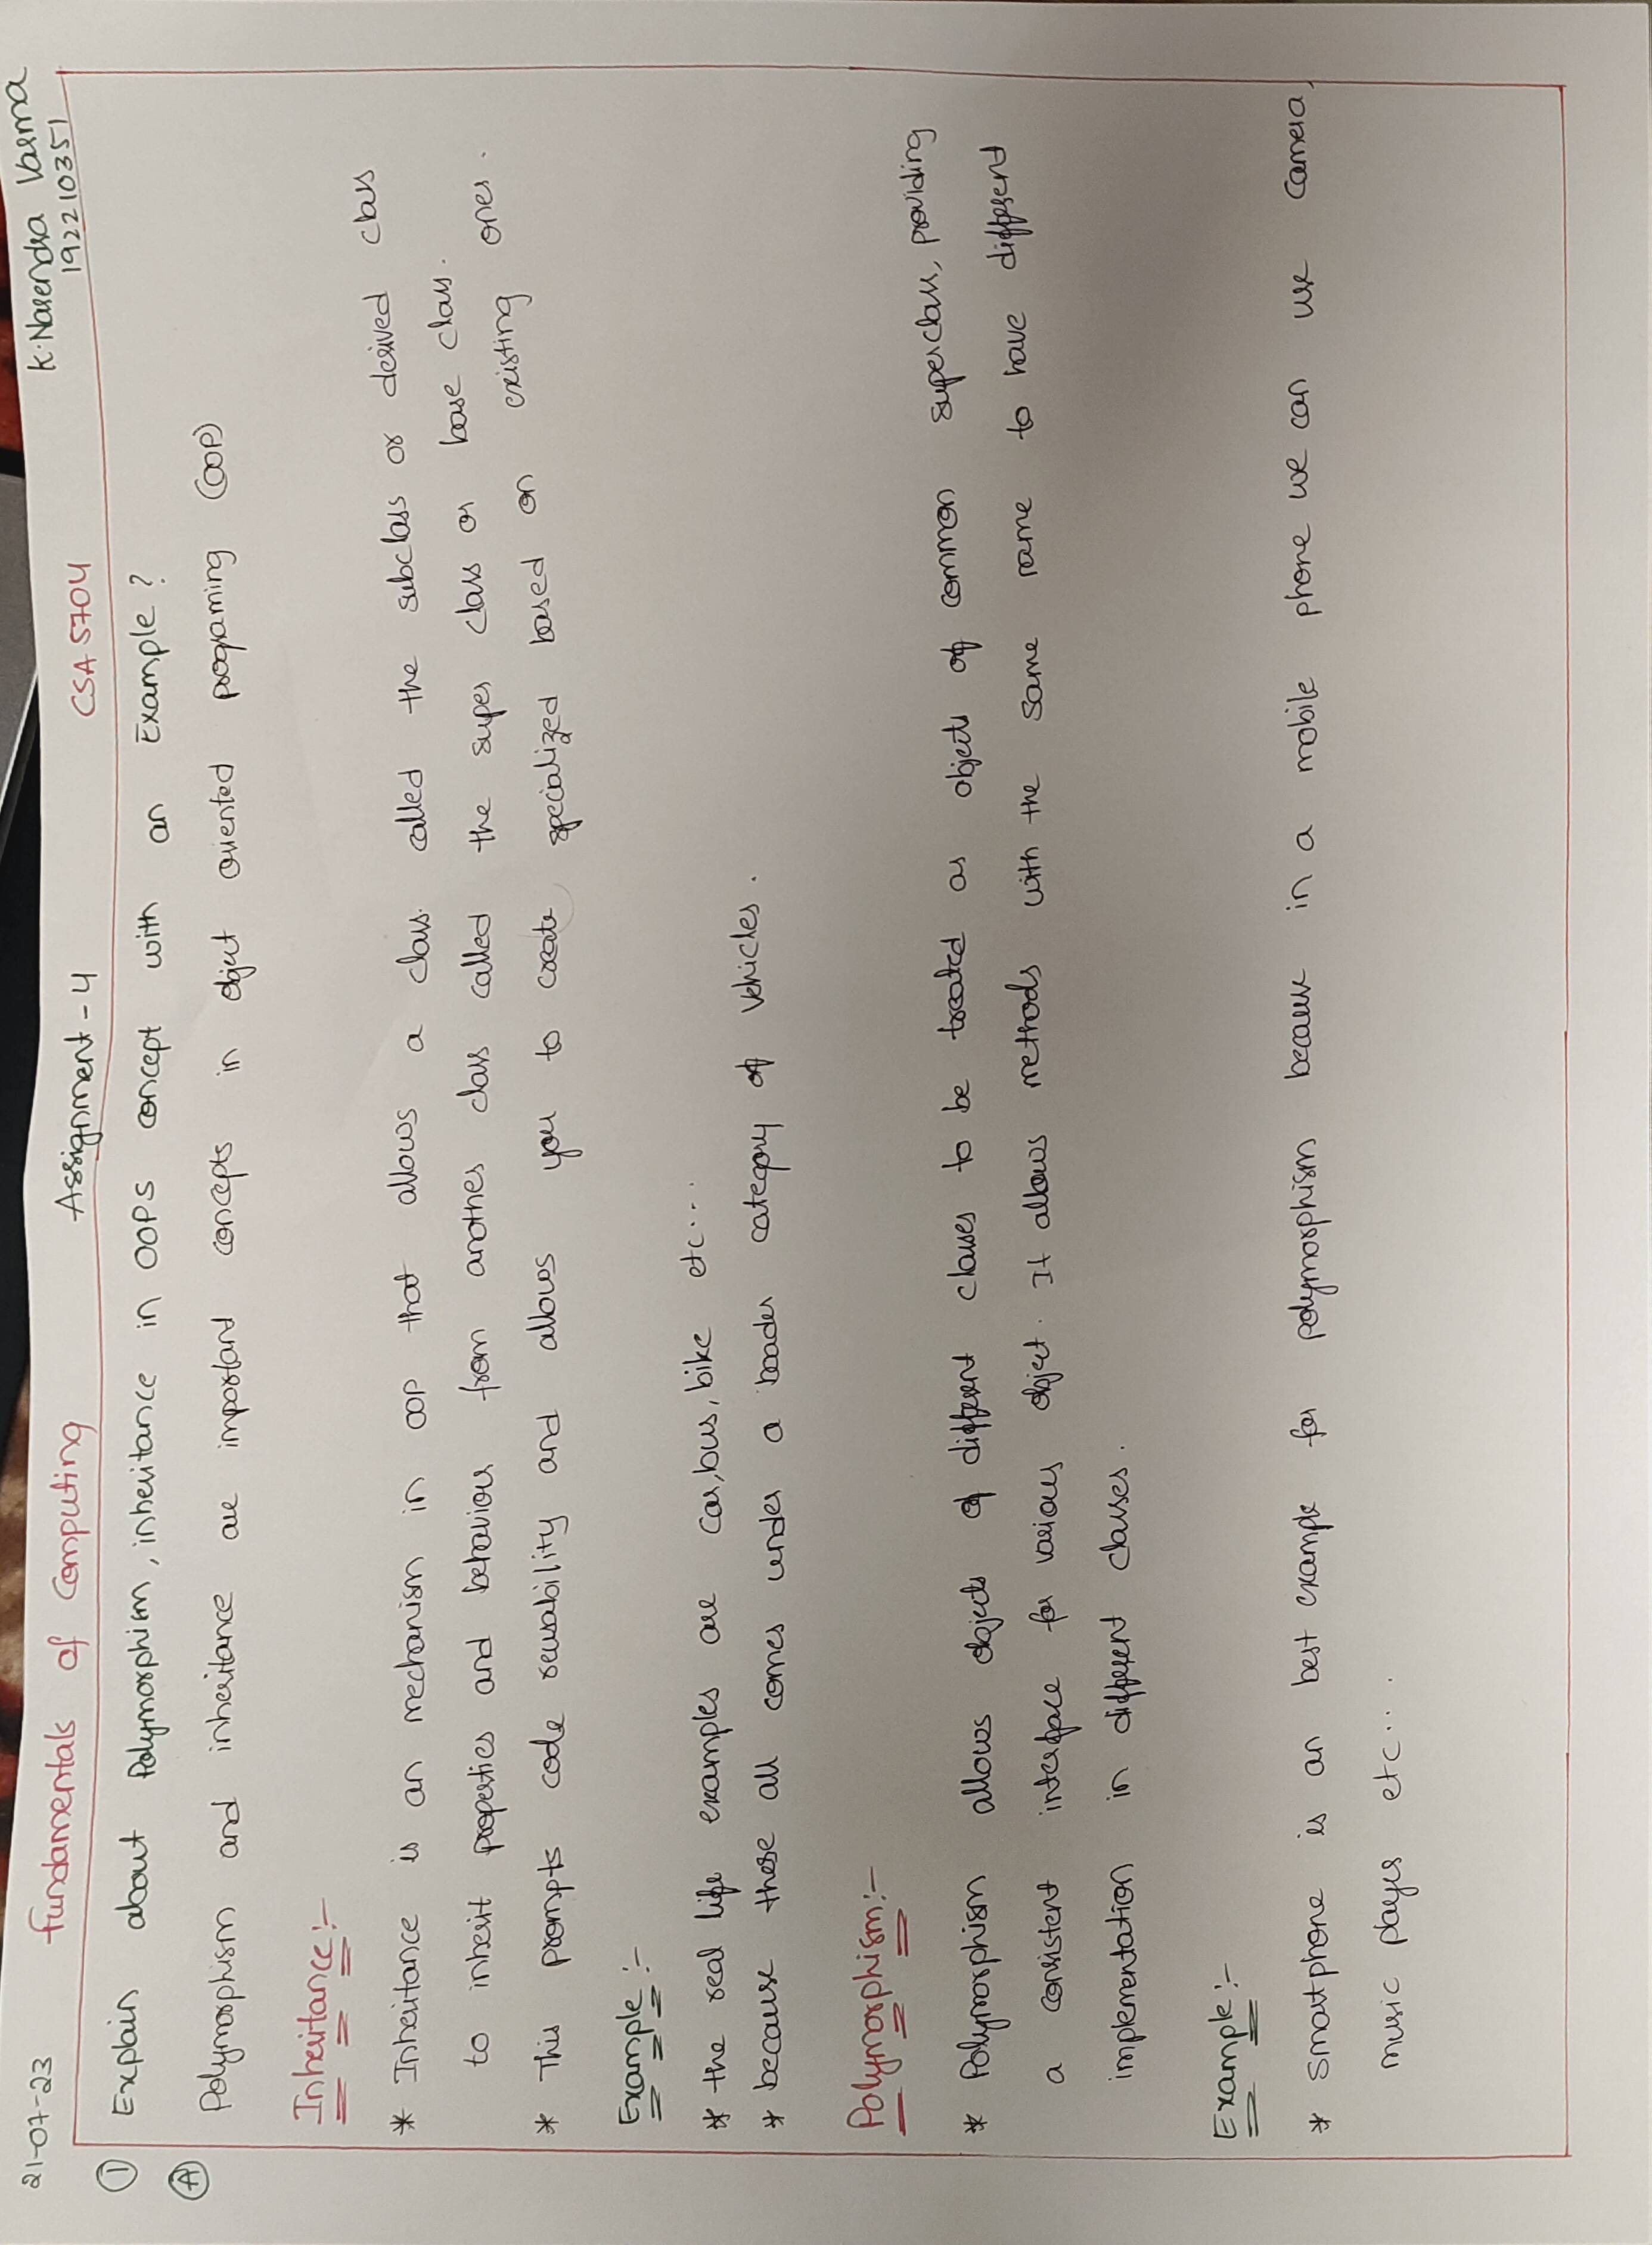 21-07-23 Fundamentals of Computing Assignment-4 CSA5704 K.Narendra Varma
192210351
① Explain about Polymorphim, inheritance in OOPS concept with an Example?
Ⓐ Polymorphism and inheritance are important concepts in object oriented programing (OOP)
Inheritance:-
* Inheritance is an mechanism in OOP that allows a class. called the subclass or derived class
to inherit properties and behaviour from another class called the super class or base class.
* This prompts code reusability and allows you to create specialized based on existing ones.
Example:-
* the real life examples are car, bus, bike etc...
* because these all comes under a boader category of vehicles.
Polymorphism:-
* Polymorphism allows objects of different classes to be treated as objects of common superclass, providing
a consistent interface for various object. It allows methods with the same name to have different
implementation in different classes.
Example:-
* smartphone is an best example for polymorphism because in a mobile phone we can use camera,
music player etc...